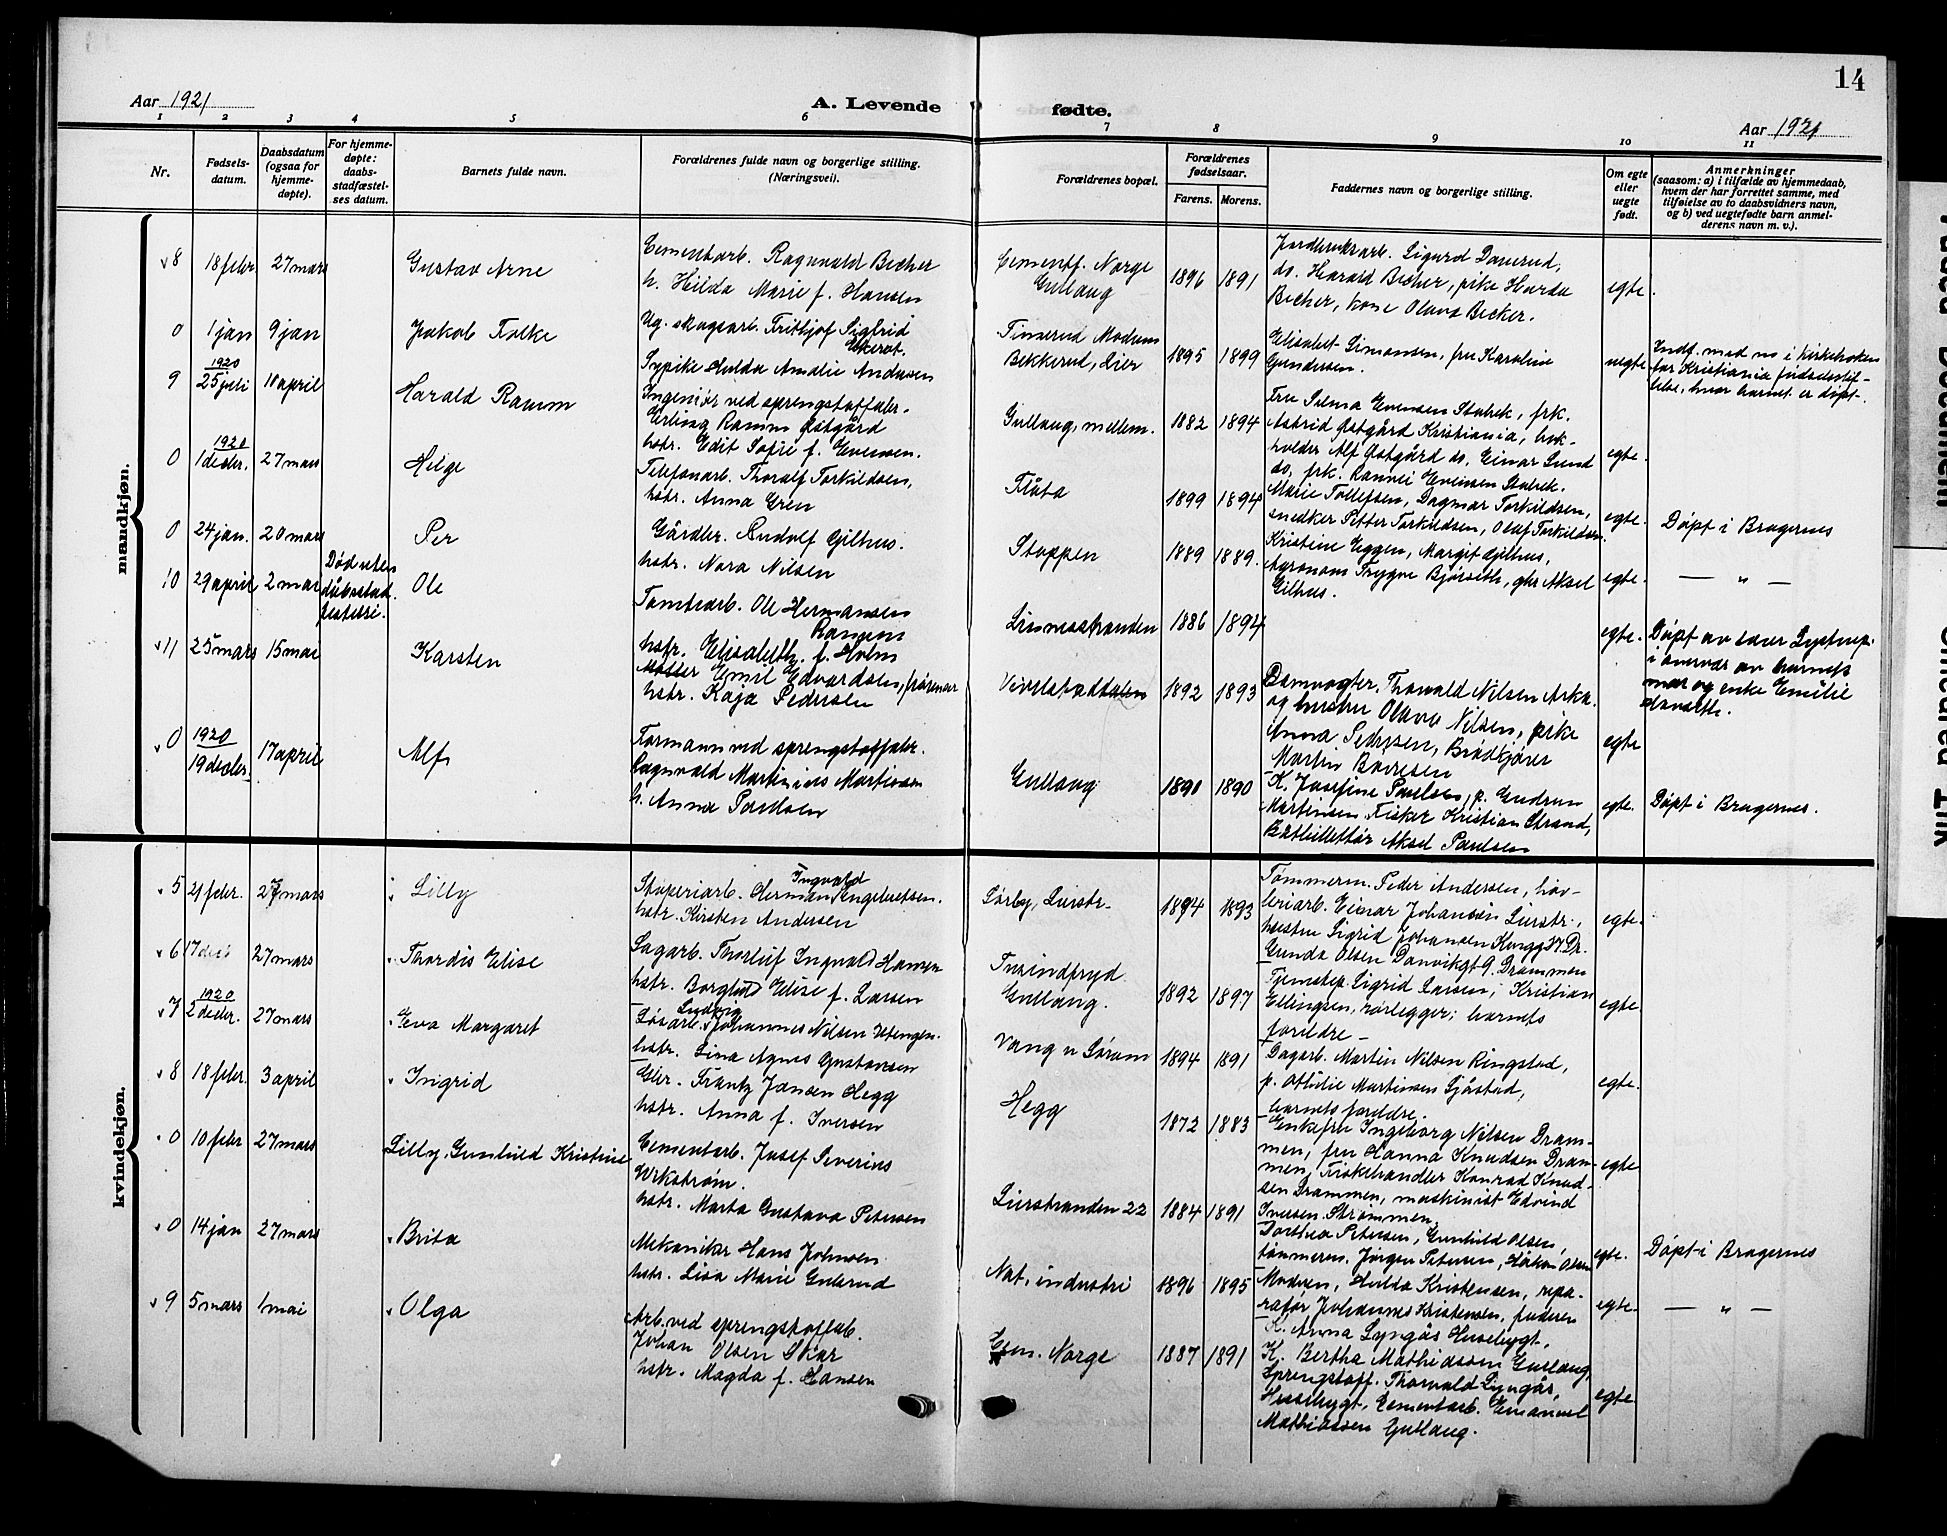 14
Aar 1921
A. Levende fødte.
Aar 1921
1 2 3 4 5 6 7 8 9 10 11
Nr.
Fødsels-
datum.
Daabsdatum
(ogsaa for
hjemme-
døpte).
For hjemme-
døpte:
daabs-
stadfæstel-
ses datum.
Barnets fulde navn.
Forældrenes fulde navn og borgerlige stilling.
(Næringsvei).
Forældrenes bopæl.
Forældrenes
fødselsaar.
Farens. Morens.
Faddernes navn og borgerlige stilling.
Om egte
eller
uegte
født.
Anmerkninger
(saasom: a) i tilfælde av hjemmedaab,
hvem der har forrettet samme, med
tilføielse av to daabsvidners navn,
og b) ved uegtefødte barn anmel-
derens navn m. v.).
mandkjøn.
8 18 febr 27 mars
Gustav Arne
Cementarb. Ragnvald Becher
h. Hilda Marie f. Hansen
Cementf. Norge
Gullaug
1896 1891
Jordbruksarb. Sigurd Danerud,
do. Harald Becher, pike Harda
Becher, kone Olava Becker.
egte.
0 1 jan 9 jan
Jakob Folke
Ug. skogsarb. Fritjof Sigfrid
Ekerot.
Sypike Hulda Amalie Andersen
Bekkerud, Lier
1895 1899
Elisabet Simonsen, fru Karoline
Gundersen.
uegte
Indf. med no i kirkeboken
for Kristiania fødselsstif-
telse, hvor barnet er døpt.
9 1920
25 juli 10 april
Harald Ramm
Ingeniør ved sprengstoffabr.
Erling Ramm Østgård
hstr. Edit Sofie f. Evensen.
Gullaug, mellem.
1882 1894
Fru Selma Evensen Stabek, frk.
Astrid Østgård Kristiania, bok-
holder Alf Østgård do. Einar Lund
do, frk. Rannei Evensen Stabek.
egte.
0 1920
1 decbr. 27 mars
Helge
Telefonarb. Thoralf Torkildsen,
hstr. Anna Gren
Flåta
1899 1894
Marie Tollefsen, Dagmar Torkildsen,
snedker Petter Torkildsen, Olaf Torkildsen.
egte.
Døpt i Bragernes
0 24 jan. 20 mars
Per
Gårdbr. Rudolf Gilhus.
hstr. Nora Nilsen
Stoppen
1889 1889.
Kristine Eggen, Margit Gilhus,
Agronom Trygve Bjørseth, gbr Aksel
Gilhus.
egte.
— " —
10 29 april 2 mai
Død uten
dåbsstad-
festelse.
Ole
Tomtearb. Ole Hermansen
Ramm
hstr. Elisabeth. f. Holm
Linnesstranden
1886 1894
egte.
Døpt av lærer Lystrup
i nærvær av barnets
mor og enke Emilie
11 25 mars 15 mai
Karsten
Emil Edvardsen,
hstr. Kaja Pedersen
1892 1893
Damvogter. Thorvald Nilsen Arka.
og hustru Olava Nilsen, pike
Anna Pedersen, Brødkjører
Martin Baeresen
egte
0 1920
19 decbr. 17 april
Alf
Formann ved sprengstoffabr.
Ragnvald Martinius Martinsen
h. Anna Paulsen
Gullaug
1890 1890
K. Josefine Paulsen, p. Gudrun
Martinsen, Fisker Kristian Strand,
Aksel Paulsen
egte.
Døpt i Bragernes.
kvindekjøn.
5 21 febr. 27 mars
Lilly
Ingvald
Støperiarb. Herman Engebretsen.
hstr. Kirsten Andersen
Sørby, Lierstr.
1894 1893
Tømmerm. Peder Andersen, høv-
leriarb. Einar Johansen Lierstr.,
hustru Sigrid Johansen Kongg 37 Dr.
Gunda Olsen Danvikgt 9. Drammen
egte.
6 27 mars
Thordis Elise
Sagarb. Thorleif Ingvald Hansen
hstr. Borghild Elise f. Larsen
Gullaug.
1892 1897
Tjenstep. Sigrid Larsen; Kristian
Ellingsen, rørlegger; barnets
foreldre —
egte.
7 1920
2 decbr. 27 mars
Eva Margaret
Ludvig
Løsarb. Johannes Nilsen
hstr. Lina Agnes Gustavsen
Vang u Sørum
1894 1891
Dagarb. Martin Nilsen Ringstad,
p. Othilie Martinsen Sjåstad,
barnets foreldre.
egte.
8 18 febr. 3 april
Ingrid
Gbr. Frantz Jansen Hegg
hstr. Anna f. Iversen
Hegg
1872 1883
Enkefru Ingeborg Nilsen Dram-
men, fru Hanna Knudsen Dram-
men, Fiskehandler Konrad Knud-
sen Drammen, maskinist Edvind
Iversen Strømmen.
egte
0 10 febr 27 mars
Lilly, Gunhild Kristine
Cementarb. Josef Severius
Wikstrøm.
hstr. Marta Gustava Petersen
Lierstranden 22
1884 1891
Dorthea Petersen, Gunhild Olsen,
tømmerm. Jørgen Petersen, Håkon Olsen
egte.
Døpt i Bragernes
0 14 jan 27 mars
Brita
Mekaniker Hans Johnsen
hstr. Lisa Marie Gulerud
Nat. industri
1896 1895
Madsen, Hulda Kristensen, repa-
ratør Johannes Kristensen, faderen
egte
— " —
9 5 mars 1 mai
Olga
Arb. ved sprengstoffab.
Johan Olsen Skar
hstr. Magda f. Hansen
Cem. Norge
1887 1891
K. Anna Lyngås Husebygt,
K. Bertha Mathiassen Gullaug,
Sprengstoff. Thorvald Lyngås,
Husebygt, Cementarb. Emanuel
Mathiassen Gullaug.
egte.